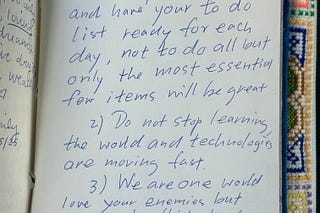 and have your to do
list ready for each
day, not to do all but
only the most essential
few items will be great
2) Do not stop learning,
the world and technologies
are moving fast.
3) We are one world
love your enemies but